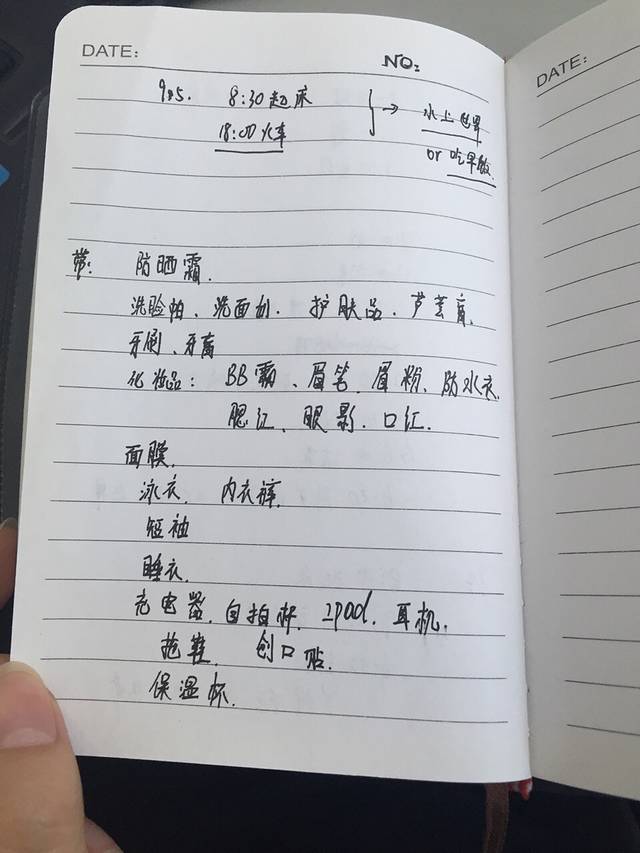 DATE: NO:
9.5. 8:30起床 } → 水上世界
18:00火车 or 吃早饭.
带: 防晒霜.
洗脸帕、洗面奶. 护肤品. 芦荟膏.
牙刷、牙膏
化妆品: BB霜、眉笔. 眉粉. 防水衣.
腮红、眼影、口红.
面膜.
泳衣. 内衣裤.
短袖
睡衣.
充电器. 自拍杆. ipad. 耳机.
拖鞋. 创口贴.
保温杯.
DATE: